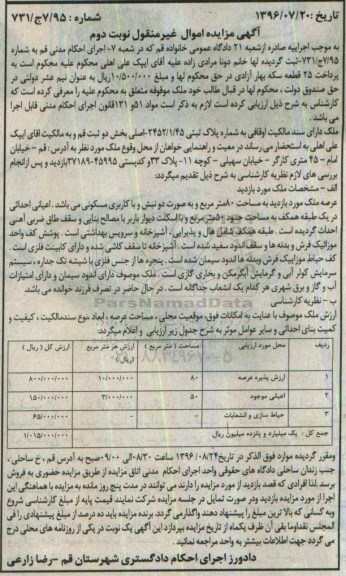 تاریخ: ۱۳۹۶/۰۷/۲۰ شماره: ۷/۹۵ج/۷۳۱
آگهی مزایده اموال غیرمنقول نوبت دوم
به موجب اجراییه صادره ازشعبه ۲۱ دادگاه عمومی خانواده قم که در شعبه ۷- اجرای احکام مدنی قم به شماره
۷/۹۵ج/۷۳۱- ثبت گردیده لها خانم دونا مرادی زاده علیه آقای ایپک علی اهلی محکوم علیه محکوم است به
پرداخت ۲۵ قطعه سکه بهار آزادی در حق محکوم لها و مبلغ ۱۰/۵۰۰/۰۰۰ریال به عنوان نیم عشر دولتی در
حق صندوق دولت ، محکوم لها در قبال طالب خود ملک موقوفه متعلق به محکوم علیه را معرفی کرده است که
کارشناس به شرح ذیل ارزیابی کرده است لازم به ذکر است مواد ۵۱و ۱۳۱قانون اجرای احکام مدنی قابل اجرا
می باشد.
ملک دارای سند مالکیت اوقافی به شماره پلاک ثبتی ۲۴۵۲/۱/۴۵-اصلی بخش دو ثبت قم و به مالکیت اقای ایپک
علی اهلی به استحضار می رساند در معیت و راهنمایی خواهان از محل وقوع ملک مورد نظر به آدرس : قم - خیابان
امام - ۴۵ متری کارگر - خیابان سهیلی - کوچه ۱۱- پلاک ۳۳و کدپستی ۴۵۹۹۵-۳۷۱۸۹بازدید و پس ازانجام
بررسی های لازم نظریه کارشناسی به شرح ذیل تقدیم میگردد:
الف - مشخصات ملک مورد بازدید
عرصه ملک مورد بازدید به مساحت ۸۰متر مربع و به صورت دو نبش و با کاربری مسکونی می باشد. اعیانی احداثی
در یک طبقه همکف به مساحت حدود ۵۰متر مربع و با اسکلت دیوار باربر با مصالح بنایی و سقف طاق ضربی آهنی
احداث گردیده است . طبقه همکف شامل هال و پذیرایی ، آشپزخانه و سرویس بهداشتی است . پوشش کف واحد
موزائیک فرش و بدنه ها و سقف اندود سفید شده است . آشپزخانه تا سقف کاشی شده و دارای کابینت فلزی است .
کف حیاط موزاییک فرش وبدنه ها اندود سیمان شده است . پنجره ها از جنس فلزی با شیشه تک جداره ، سیستم
سرمایش کولر آبی و گرمایش آبگرمکن و بخاری گازی است . ملک موصوف دارای اندود سیمان و دارای امتیازات
آب و گاز و برق شهری هر کدام یک انشعاب جداگانه است . در حال حاضر در تصرف فرزند خوانده می باشد.
ب - نظریه کارشناسی
ارزش ملک موصوف با عنایت به امکانات فوق، موقعیت محلی ، مساحت عرصه ، ابعاد نوع سندمالکیت ، کیفیت و
کمیت بنای احداثی و سایر عوامل موثر به شرح جدول زیر ارزیابی و اعلام میگردد:
ردیف محل مورد ارزیابی مساحت (متر مربع) ارزش هر متر مربع (ریال) ارزش کل (ریال)
۱ ارزش پذیره عرصه ۸۰ ۱۰/۰۰۰/۰۰۰ ۸۰۰/۰۰۰/۰۰۰
۲ اعیانی موجود ۵۰ ۳/۰۰۰/۰۰۰ ۱۵۰/۰۰۰/۰۰۰
۳ حیاط سازی و انشعابات - - ۶۵/۰۰۰/۰۰۰
جمع کل : یک میلیارد و پانزده میلیون ریال ۱/۰۱۵/۰۰۰/۰۰۰
ومقرر گردیده موارد فوق الذکر در تاریخ ۱۳۹۶/۰۸/۲۴ ساعت ۰۸/۳۰الی ۰۹/۰۰صبح به آدرس قم ، خ ساحلی ،
جنب زندان ساحلی دادگاه های حقوقی واحد اجرای احکام مدنی اتاق مزایده از طریق مزایده حضوری به فروش
برسد .لذا افرادی که قصد بازدید از مورد مزایده را دارند می توانند در مدت پنج روز مانده به مزایده با هماهنگی این
اجرا از مورد مزایده بازدید ودر صورت تمایل در جلسه مزایده شرکت نمایند قیمت پایه از مبلغ کارشناسی شروع
وبه کسانی که بالا ترین مبلغ را پیشنهاد دهند واگذار می گردد. برنده مزایده باید ده درصد از مبلغ پیشنهادی را فی
المجلس نقداوما بقی آن ظرف یکماه از تاریخ مزایده بپردازد این آگهی یک نوبت در یکی از روزنامه های محلی درج
می گردد جهت اطلاعات بیشتر به واحد مراجعه نمائید .
دادورز اجرای احکام دادگستری شهرستان قم -رضا زارعی